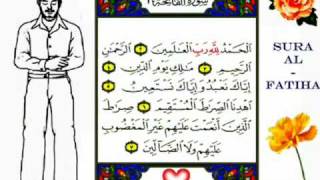 سُورَةُ الْفَاتِحَةِ
الْحَمْدُ لِلَّهِ رَبِّ الْعَالَمِينَ ۝ الرَّحْمَٰنِ
الرَّحِيمِ ۝ مَالِكِ يَوْمِ الدِّينِ ۝
إِيَّاكَ نَعْبُدُ وَإِيَّاكَ نَسْتَعِينُ ۝
اهْدِنَا الصِّرَاطَ الْمُسْتَقِيمَ ۝ صِرَاطَ
الَّذِينَ أَنْعَمْتَ عَلَيْهِمْ غَيْرِ الْمَغْضُوبِ
عَلَيْهِمْ وَلَا الضَّالِّينَ ۝
SURA
AL
-
FATIHA